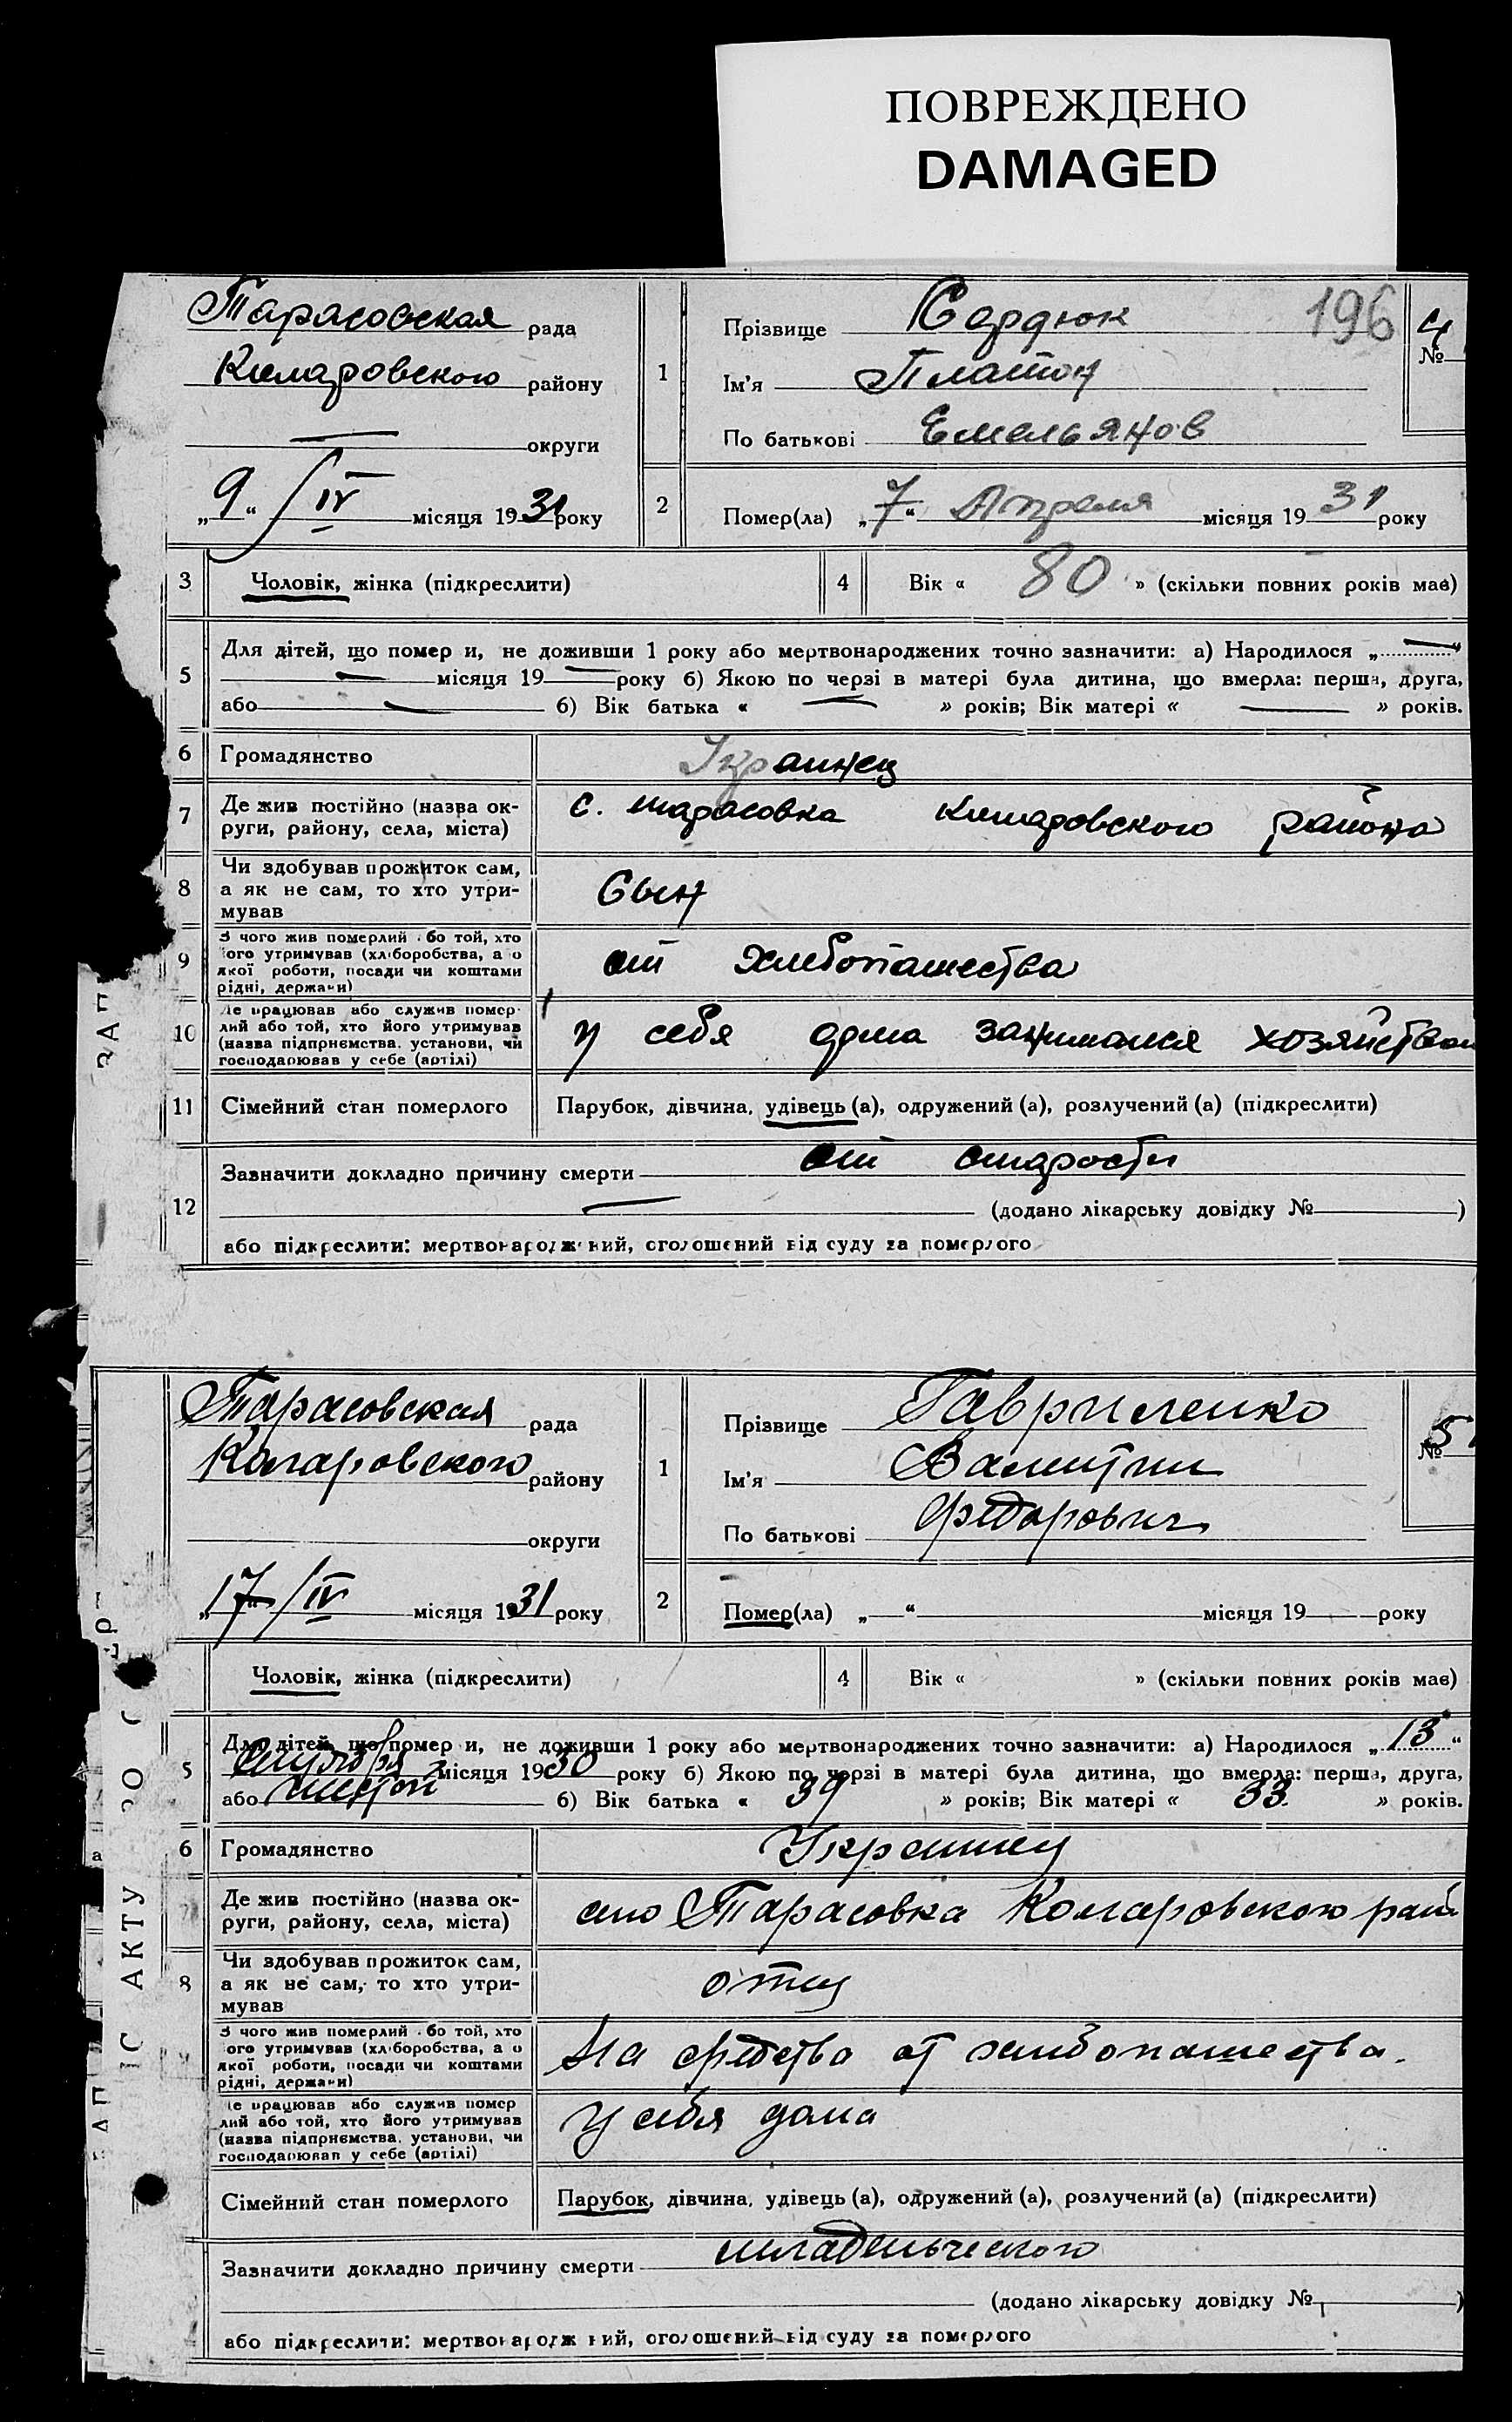 ПОВРЕЖДЕНО
DAMAGED
Тарасовская рада
Кимаровского району
округи
„9“ IV місяця 1931 року
1
Прізвище Сердюк
196
4
№
Ім'я Платон
По батькові Емельянов
2
Помер(ла) „7“ Апреля місяця 1931 року
3
Чоловік, жінка (підкреслити)
4
Вік « 80 » (скільки повних років має)
5
Для дітей, що помер и, не доживши 1 року або мертвонароджених точно зазначити: а) Народилося „ “
місяця 19 року б) Якою по черзі в матері була дитина, що вмерла: перша, друга,
або б) Вік батька « » років; Вік матері « » років.
6
Громадянство
Украинец
7
Де жив постійно (назва ок-
руги, району, села, міста)
с. тарасовка Кимаровского района
8
Чи здобував прожиток сам,
а як не сам, то хто утри-
мував
Сын
9
З чого жив померлий або той, хто
ого утримував (хліборобства, а о
якої роботи, посади чи коштами
рідні, держави)
от хлебопашества
10
Де працював або служив помер-
лий або той, хто його утримував
(назва підприємства, установи, чи
господарював у себе (артілі)
у себя дома занимался хозяйством
11
Сімейний стан померлого
Парубок, дівчина, удівець (а), одружений (а), розлучений (а) (підкреслити)
12
Зазначити докладно причину смерти от старости
(додано лікарську довідку № )
або підкреслити: мертвонароджений, оголошений від суду за померлого
ЗАП
Тарасовская рада
Комаровского району
округи
„17“ IV місяця 1931 року
1
Прізвище Гавриленко
5
№
Ім'я Валентин
По батькові Федорович
2
Помер(ла) „ “ місяця 19 року
Чоловік, жінка (підкреслити)
4
Вік « » (скільки повних років має)
5
Для дітей, що помер и, не доживши 1 року або мертвонароджених точно зазначити: а) Народилося „13“
октября місяця 1930 року б) Якою по черзі в матері була дитина, що вмерла: перша, друга,
або шестой б) Вік батька « 39 » років; Вік матері « 33 » років.
6
Громадянство
Украинец
Де жив постійно (назва ок-
руги, району, села, міста)
село Тарасовка Комаровского рай
8
Чи здобував прожиток сам,
а як не сам, то хто утри-
мував
отец
З чого жив померлий або той, хто
ого утримував (хліборобства, а о
якої роботи, посади чи коштами
рідні, держави)
На средства от хлебопашества.
Де працював або служив помер
лий або той, хто його утримував
(назва підприємства, установи, чи
господарював у себе (артілі)
У себя дома
Сімейний стан померлого
Парубок, дівчина, удівець (а), одружений (а), розлучений (а) (підкреслити)
Зазначити докладно причину смерти младенческого
(додано лікарську довідку № )
або підкреслити: мертвонароджений, оголошений від суду за померлого
АКТУ